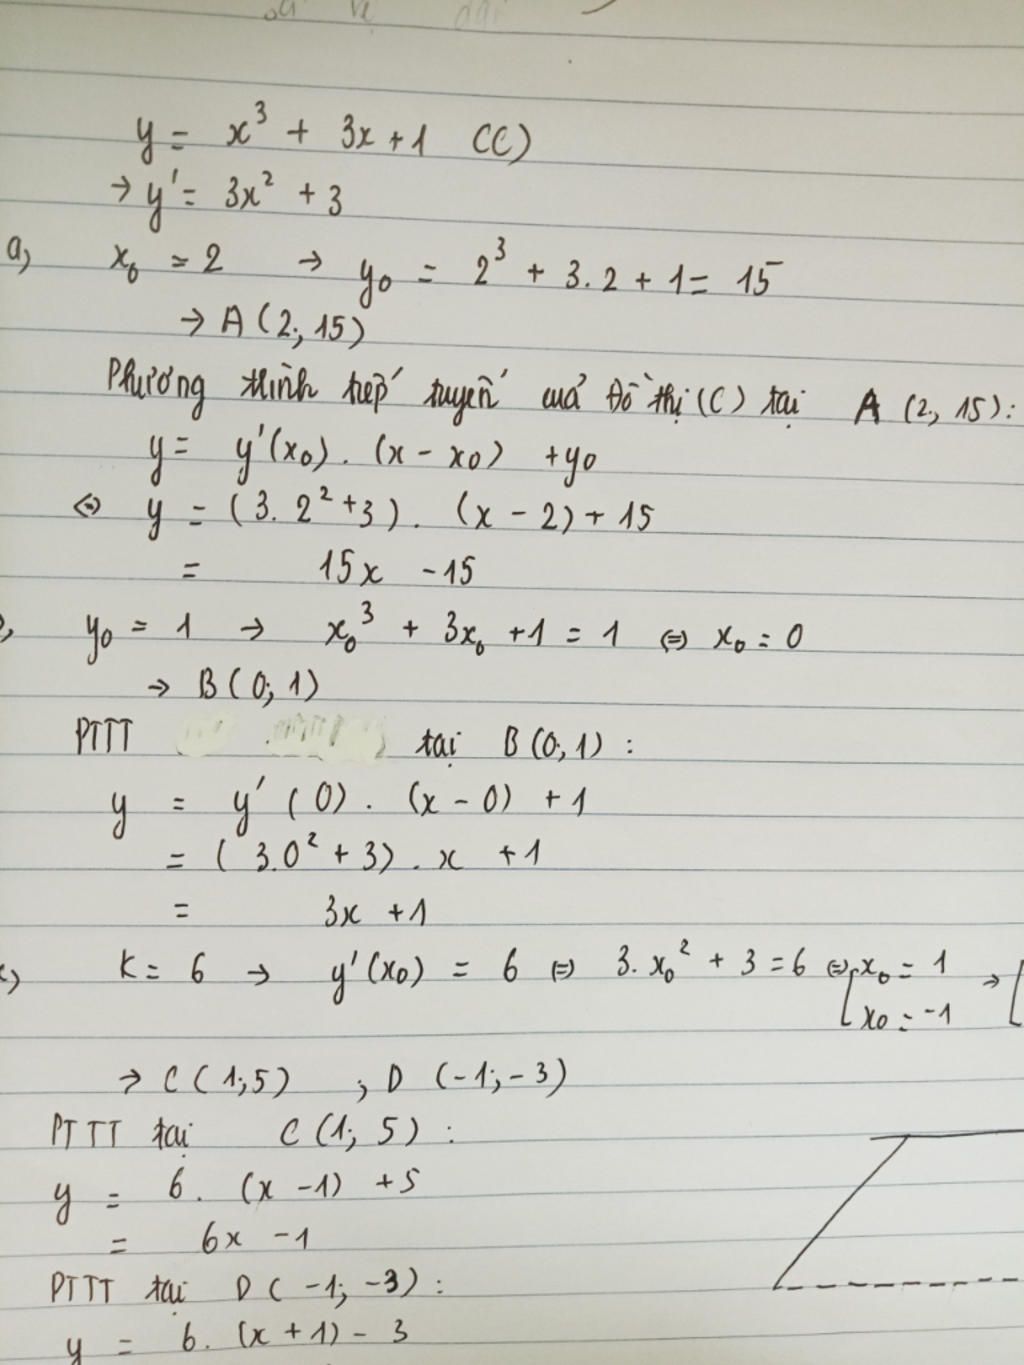 y = x³ + 3x + 1 (C)
→ y' = 3x² + 3
a, x₀ = 2 → y₀ = 2³ + 3.2 + 1 = 15
→ A (2; 15)
Phương trình tiếp tuyến của Đồ thị (C) tại A (2, 15):
y = y'(x₀). (x - x₀) + y₀
⇔ y = (3. 2² + 3). (x - 2) + 15
= 15x - 15
y₀ = 1 → x₀³ + 3x₀ + 1 = 1 ⇔ x₀ = 0
→ B (0; 1)
PTTT tại B (0; 1) :
y = y' (0). (x - 0) + 1
= (3.0² + 3). x + 1
= 3x + 1
c, K = 6 → y'(x₀) = 6 ⇔ 3. x₀² + 3 = 6 ⇔ [ x₀ = 1 → [
x₀ = -1
→ C (1; 5) ; D (-1; -3)
PTTT tại C (1; 5) :
y = 6. (x - 1) + 5
= 6x - 1
PTTT tại D (-1; -3) :
y = 6. (x + 1) - 3